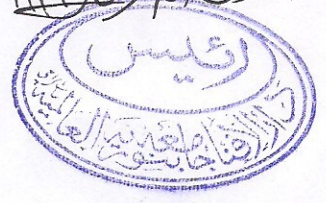 رئیس
دارالافتاء جامعه بنوریه العالمیه